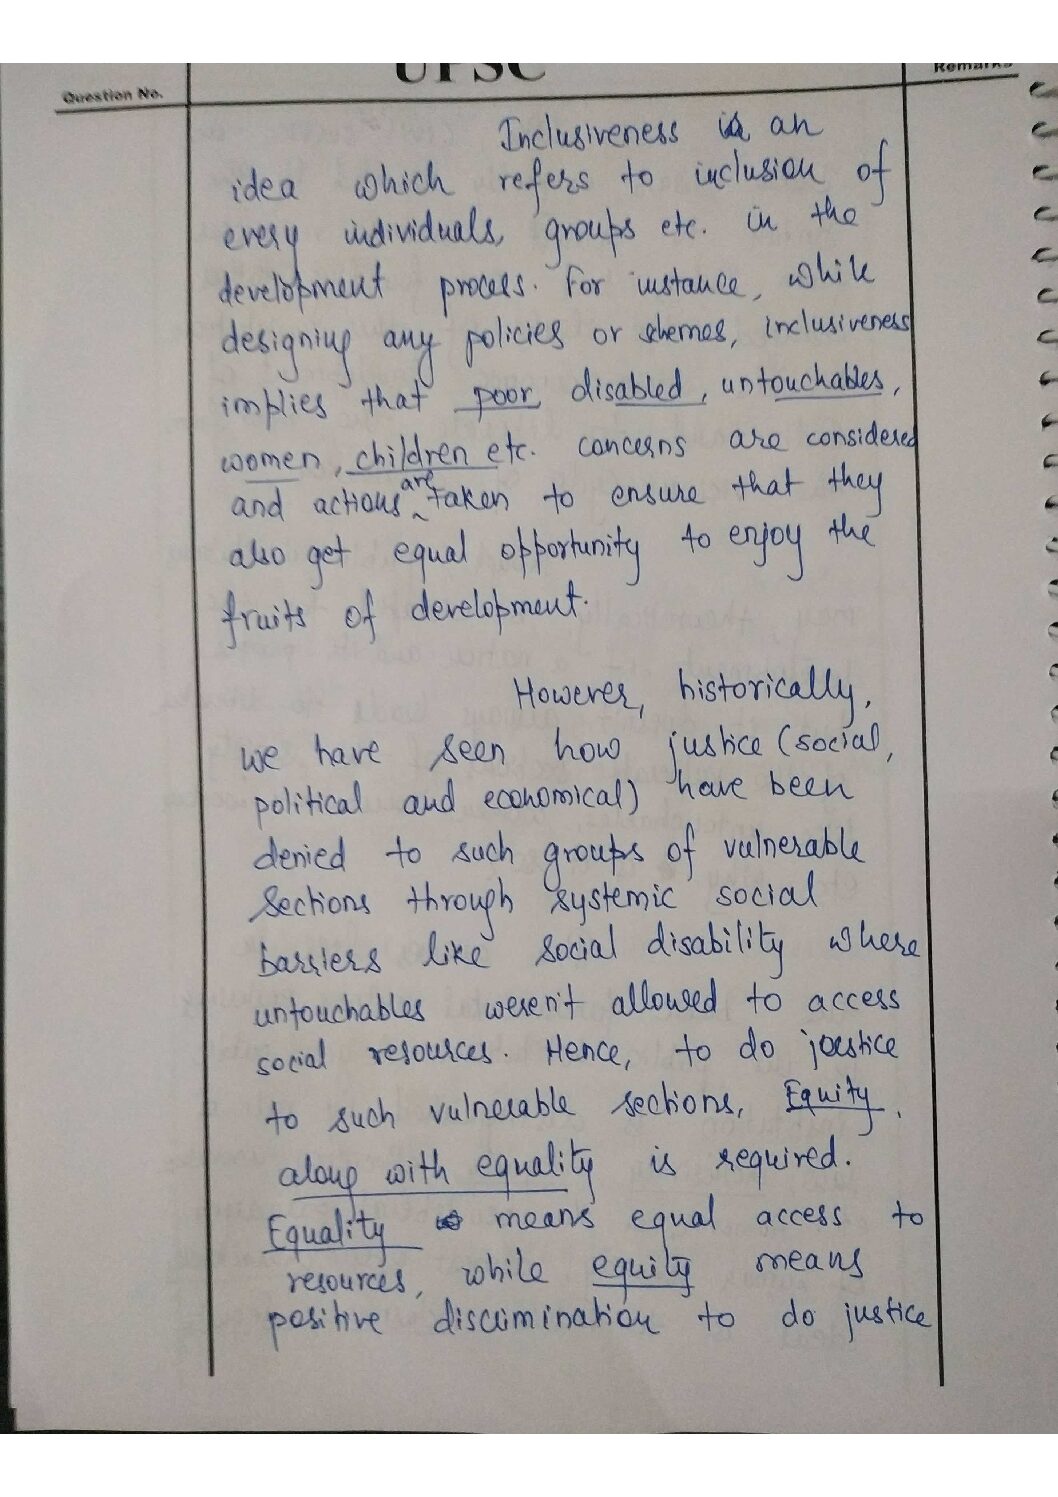 UPSC
Remarks
Question No.
Inclusiveness is an
idea which refers to inclusion of
every individuals, groups etc. in the
development process. For instance, while
designing any policies or schemes, inclusiveness
implies that poor, disabled, untouchables,
women, children etc. concerns are considered
and actions are taken to ensure that they
also get equal opportunity to enjoy the
fruits of development.
However, historically,
we have seen how justice (social,
political and economical) have been
denied to such groups of vulnerable
sections through systemic social
barriers like social disability where
untouchables weren't allowed to access
social resources. Hence, to do justice
to such vulnerable sections, Equity,
along with equality is required.
Equality means equal access to
resources, while equity means
positive discrimination to do justice